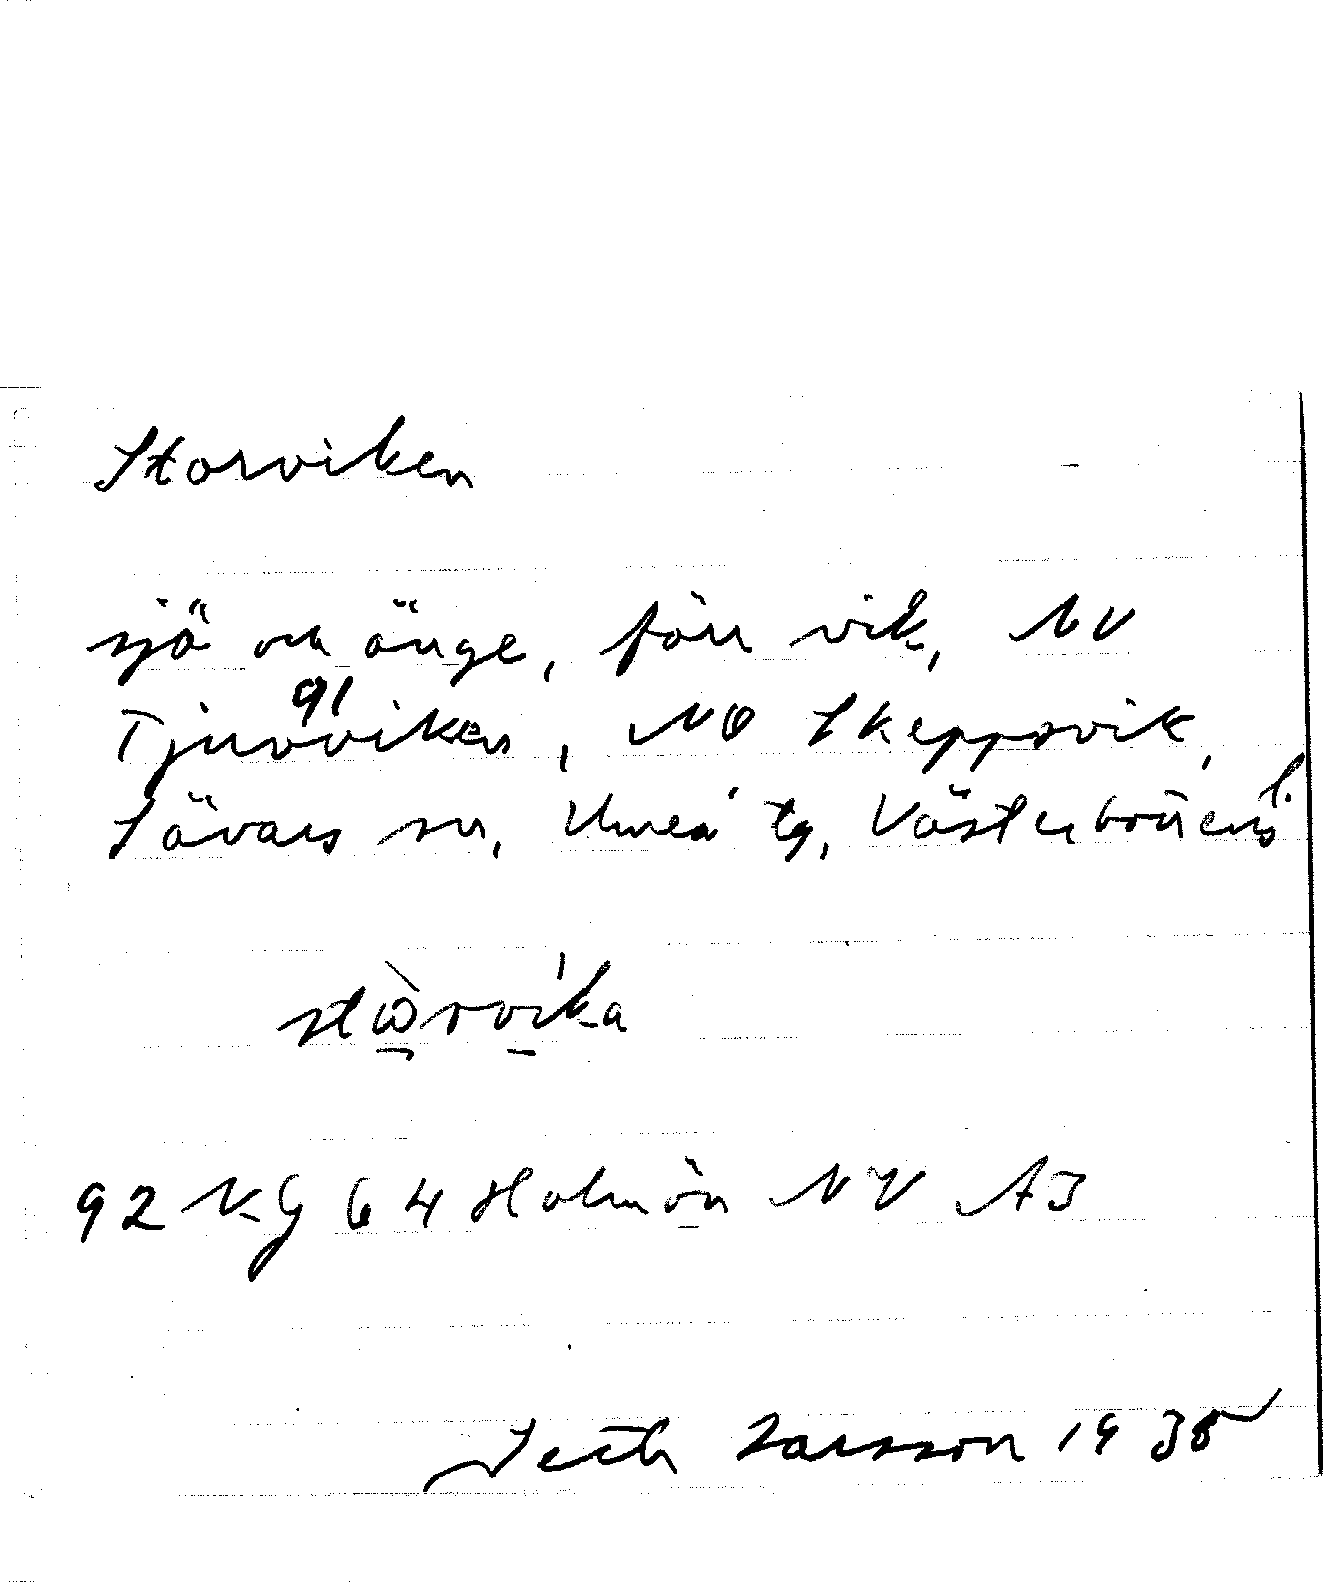 Storviken
sjö och änge, förr vik, NV
91
Tjuvviken, NO Skeppsvik,
Sävars sn, Umeå tg, Västerbottens l.
92 NG 64 Holmön NV AJ
Seth Larsson 1935